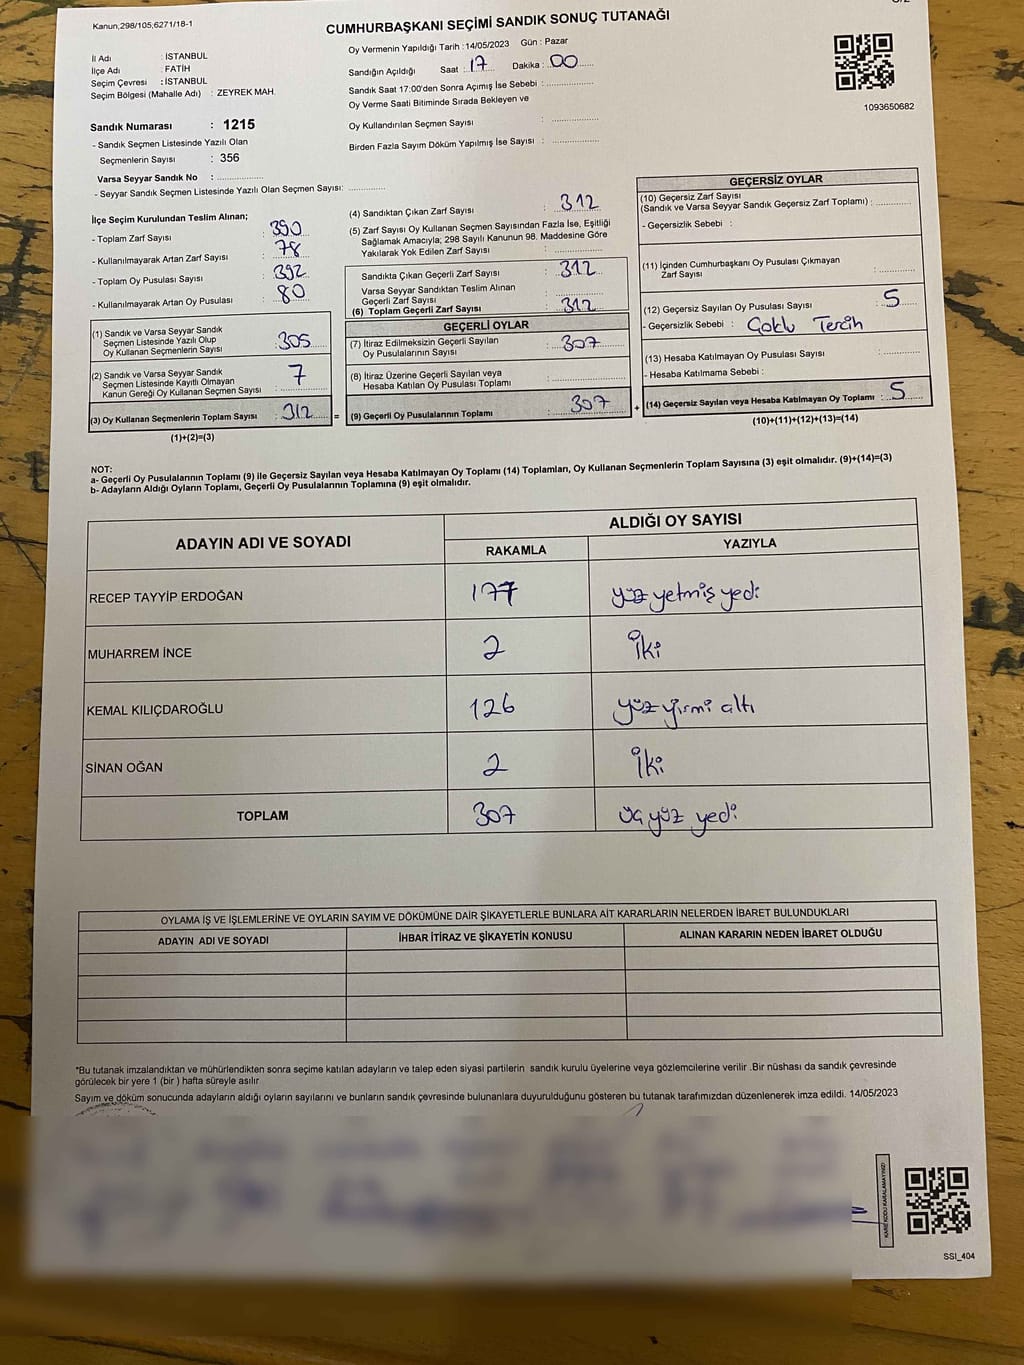 Kanun,298/105;6271/18-1
CUMHURBAŞKANI SEÇİMİ SANDIK SONUÇ TUTANAĞI
İl Adı : İSTANBUL
İlçe Adı : FATİH
Seçim Çevresi : İSTANBUL
Seçim Bölgesi (Mahalle Adı) : ZEYREK MAH.
Sandık Numarası : 1215
- Sandık Seçmen Listesinde Yazılı Olan
Seçmenlerin Sayısı : 356
Varsa Seyyar Sandık No : ..................
- Seyyar Sandık Seçmen Listesinde Yazılı Olan Seçmen Sayısı: .............
Oy Vermenin Yapıldığı Tarih : 14/05/2023 Gün : Pazar
Sandığın Açıldığı Saat : 17 Dakika : 00
Sandık Saat 17:00'den Sonra Açımış İse Sebebi : ................
Oy Verme Saati Bitiminde Sırada Bekleyen ve
Oy Kullandırılan Seçmen Sayısı : ................
Birden Fazla Sayım Döküm Yapılmış İse Sayısı : ................
1093650682
İlçe Seçim Kurulundan Teslim Alınan;
- Toplam Zarf Sayısı : 390
- Kullanılmayarak Artan Zarf Sayısı : 78
- Toplam Oy Pusulası Sayısı : 392
- Kullanılmayarak Artan Oy Pusulası : 80
(1) Sandık ve Varsa Seyyar Sandık
Seçmen Listesinde Yazılı Olup
Oy Kullanan Seçmenlerin Sayısı : 305
(2) Sandık ve Varsa Seyyar Sandık
Seçmen Listesinde Kayıtlı Olmayan
Kanun Gereği Oy Kullanan Seçmen Sayısı : 7
(3) Oy Kullanan Seçmenlerin Toplam Sayısı : 312 =
(1)+(2)=(3)
(4) Sandıktan Çıkan Zarf Sayısı : 312
(5) Zarf Sayısı Oy Kullanan Seçmen Sayısından Fazla İse, Eşitliği
Sağlamak Amacıyla; 298 Sayılı Kanunun 98. Maddesine Göre
Yakılarak Yok Edilen Zarf Sayısı : ................
Sandıkta Çıkan Geçerli Zarf Sayısı : 312
Varsa Seyyar Sandıktan Teslim Alınan
Geçerli Zarf Sayısı : ................
(6) Toplam Geçerli Zarf Sayısı : 312
GEÇERLİ OYLAR
(7) İtiraz Edilmeksizin Geçerli Sayılan
Oy Pusulalarının Sayısı : 307
(8) İtiraz Üzerine Geçerli Sayılan veya
Hesaba Katılan Oy Pusulası Toplamı : ................
(9) Geçerli Oy Pusulalarının Toplamı : 307 +
GEÇERSİZ OYLAR
(10) Geçersiz Zarf Sayısı
(Sandık ve Varsa Seyyar Sandık Geçersiz Zarf Toplamı) : .............
- Geçersizlik Sebebi :
(11) İçinden Cumhurbaşkanı Oy Pusulası Çıkmayan
Zarf Sayısı : .............
(12) Geçersiz Sayılan Oy Pusulası Sayısı : 5
- Geçersizlik Sebebi : Çoklu Tercih
(13) Hesaba Katılmayan Oy Pusulası Sayısı : .............
- Hesaba Katılmama Sebebi :
(14) Geçersiz Sayılan veya Hesaba Katılmayan Oy Toplamı : 5
(10)+(11)+(12)+(13)=(14)
NOT:
a- Geçerli Oy Pusulalarının Toplamı (9) ile Geçersiz Sayılan veya Hesaba Katılmayan Oy Toplamı (14) Toplamları, Oy Kullanan Seçmenlerin Toplam Sayısına (3) eşit olmalıdır. (9)+(14)=(3)
b- Adayların Aldığı Oyların Toplamı, Geçerli Oy Pusulalarının Toplamına (9) eşit olmalıdır.
ADAYIN ADI VE SOYADI ALDIĞI OY SAYISI
RAKAMLA YAZIYLA
RECEP TAYYİP ERDOĞAN 177 yüz yetmiş yedi
MUHARREM İNCE 2 iki
KEMAL KILIÇDAROĞLU 126 yüz yirmi altı
SİNAN OĞAN 2 iki
TOPLAM 307 üç yüz yedi
OYLAMA İŞ VE İŞLEMLERİNE VE OYLARIN SAYIM VE DÖKÜMÜNE DAİR ŞİKAYETLERLE BUNLARA AİT KARARLARIN NELERDEN İBARET BULUNDUKLARI
ADAYIN ADI VE SOYADI İHBAR İTİRAZ VE ŞİKAYETİN KONUSU ALINAN KARARIN NEDEN İBARET OLDUĞU
*Bu tutanak imzalandıktan ve mühürlendikten sonra seçime katılan adayların ve talep eden siyasi partilerin sandık kurulu üyelerine veya gözlemcilerine verilir .Bir nüshası da sandık çevresinde
görülecek bir yere 1 (bir ) hafta süreyle asılır
Sayım ve döküm sonucunda adayların aldığı oyların sayılarını ve bunların sandık çevresinde bulunanlara duyurulduğunu gösteren bu tutanak tarafımızdan düzenlenerek imza edildi. 14/05/2023
KARE KODU KARALAMAYINIZ!
SSI_404